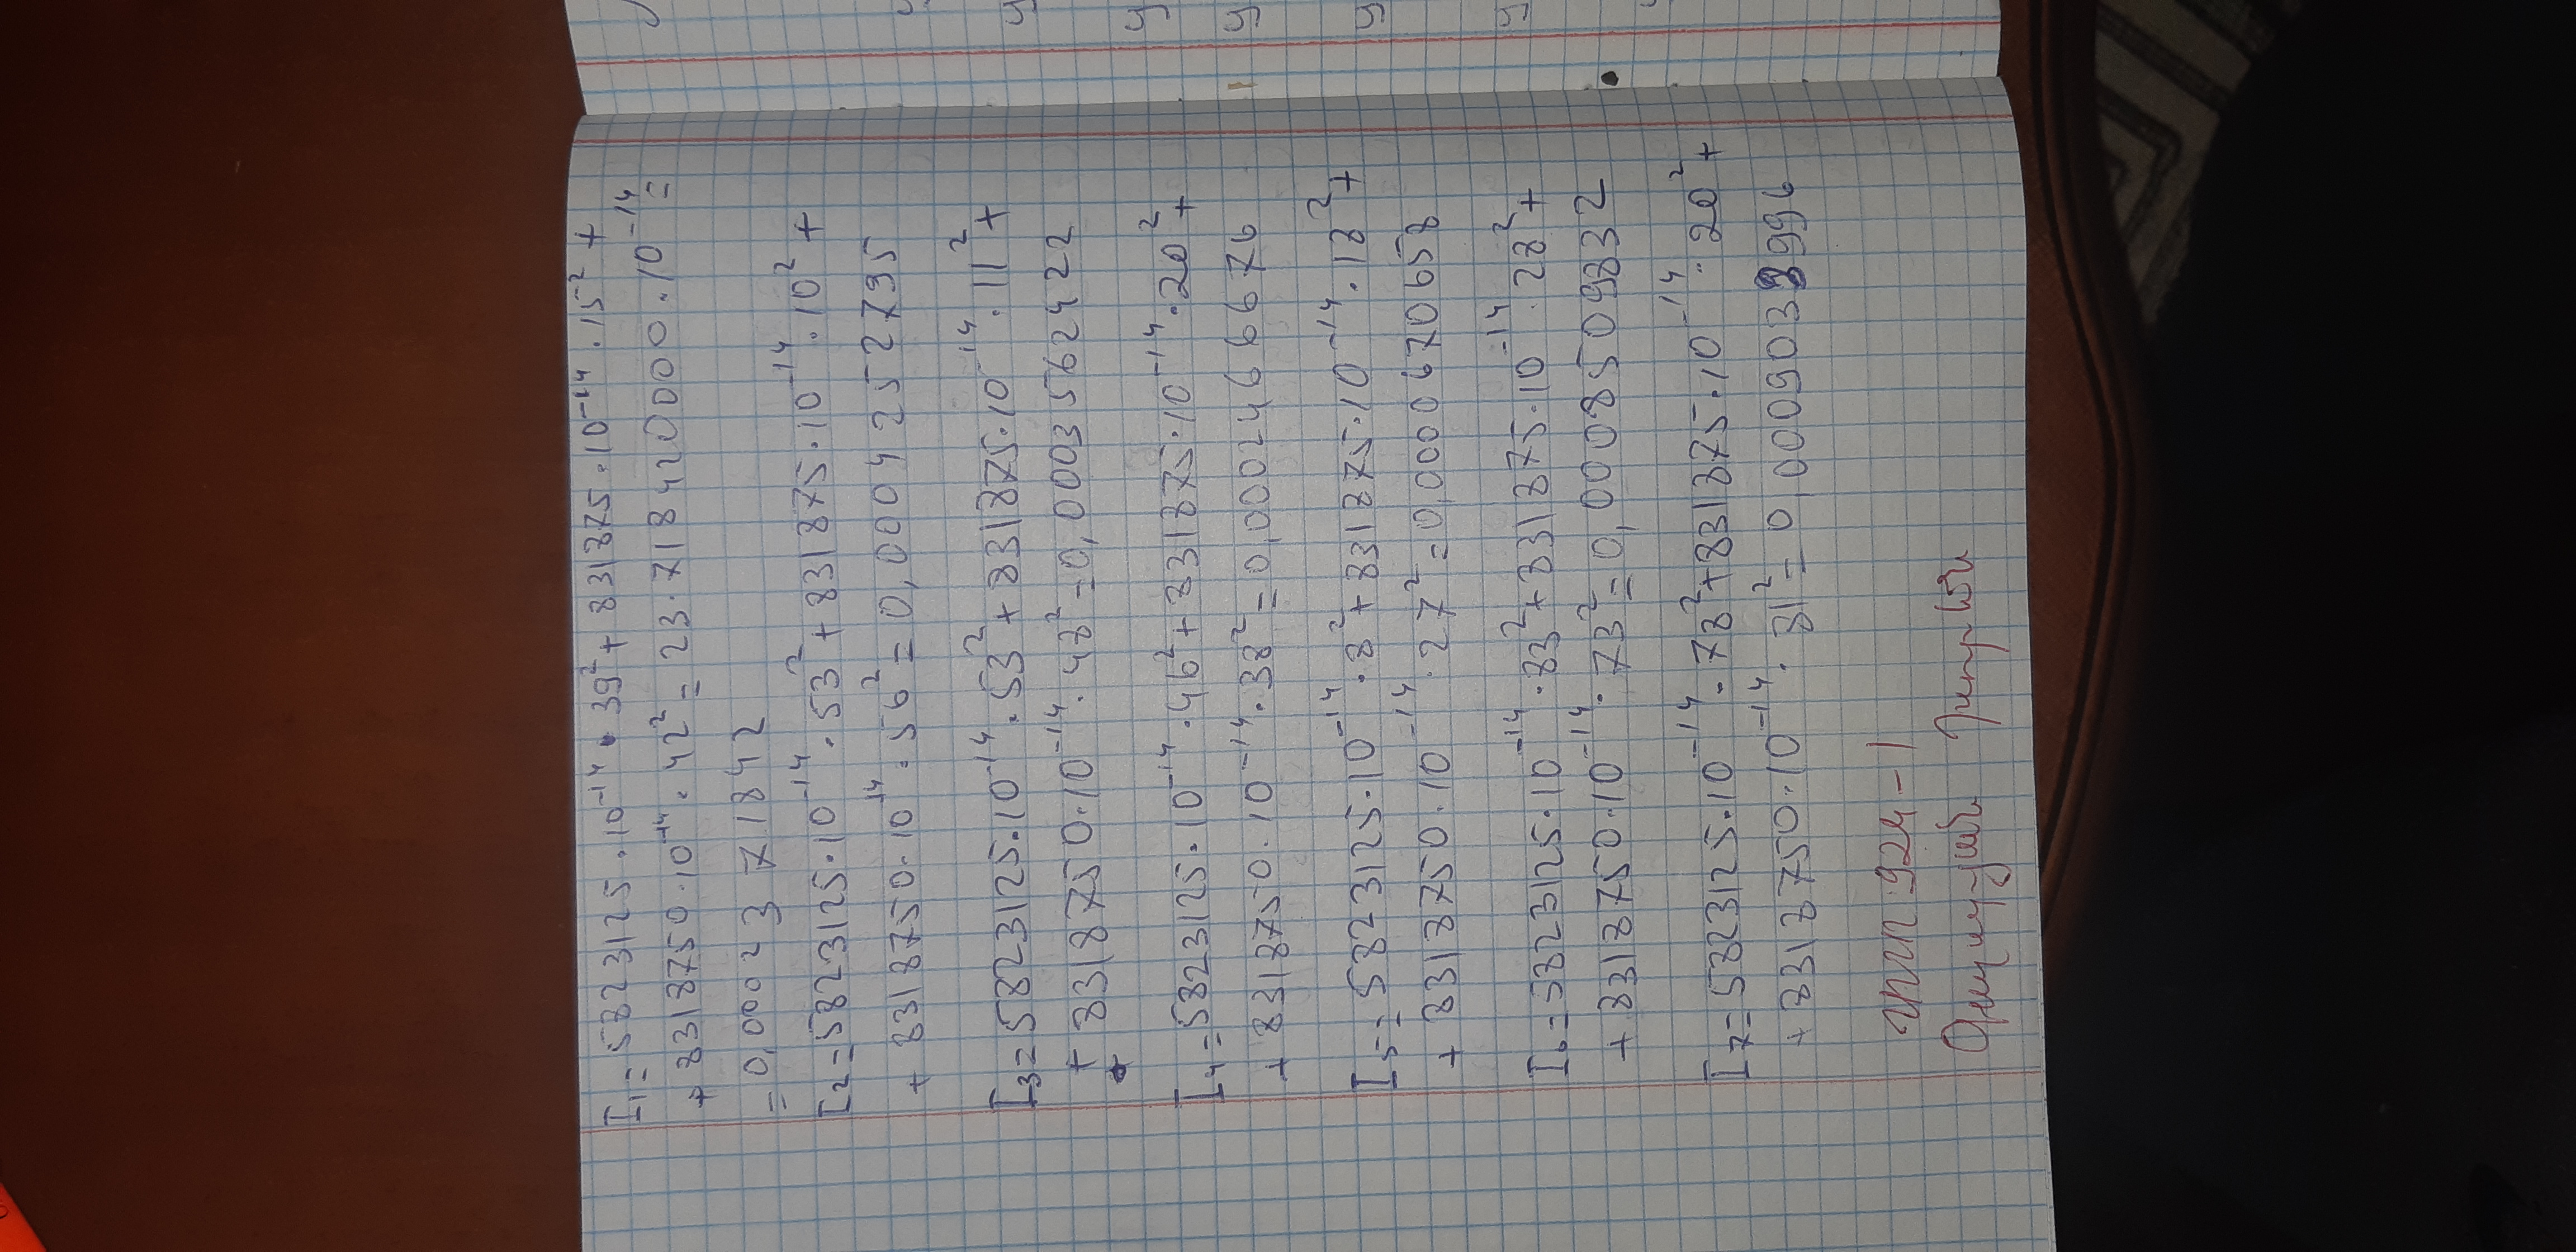 I₁ = 5823125·10⁻¹⁴·39² + 831875·10⁻¹⁴·15² +
+ 8318750·10⁻¹⁴·42² = 23·718420000·10⁻¹⁴ =
= 0,00023 71842
I₂ = 5823125·10⁻¹⁴·53² + 831875·10⁻¹⁴·10² +
+ 8318750·10⁻¹⁴·56² = 0,0004252795
I₃ = 5823125·10⁻¹⁴·53² + 831875·10⁻¹⁴·11² +
+ 8318750·10⁻¹⁴·48² = 0,0003562422
I₄ = 5823125·10⁻¹⁴·46² + 831875·10⁻¹⁴·20² +
+ 8318750·10⁻¹⁴·38² = 0,0002466676
I₅ = 5823125·10⁻¹⁴·8² + 831875·10⁻¹⁴·18² +
+ 8318750·10⁻¹⁴·27² = 0,0000670658
I₆ = 5823125·10⁻¹⁴·83² + 831875·10⁻¹⁴·28² +
+ 8318750·10⁻¹⁴·73² = 0,0008509832
I₇ = 5823125·10⁻¹⁴·78² + 831875·10⁻¹⁴·20² +
+ 8318750·10⁻¹⁴·81² = 0,0009038996
924-1